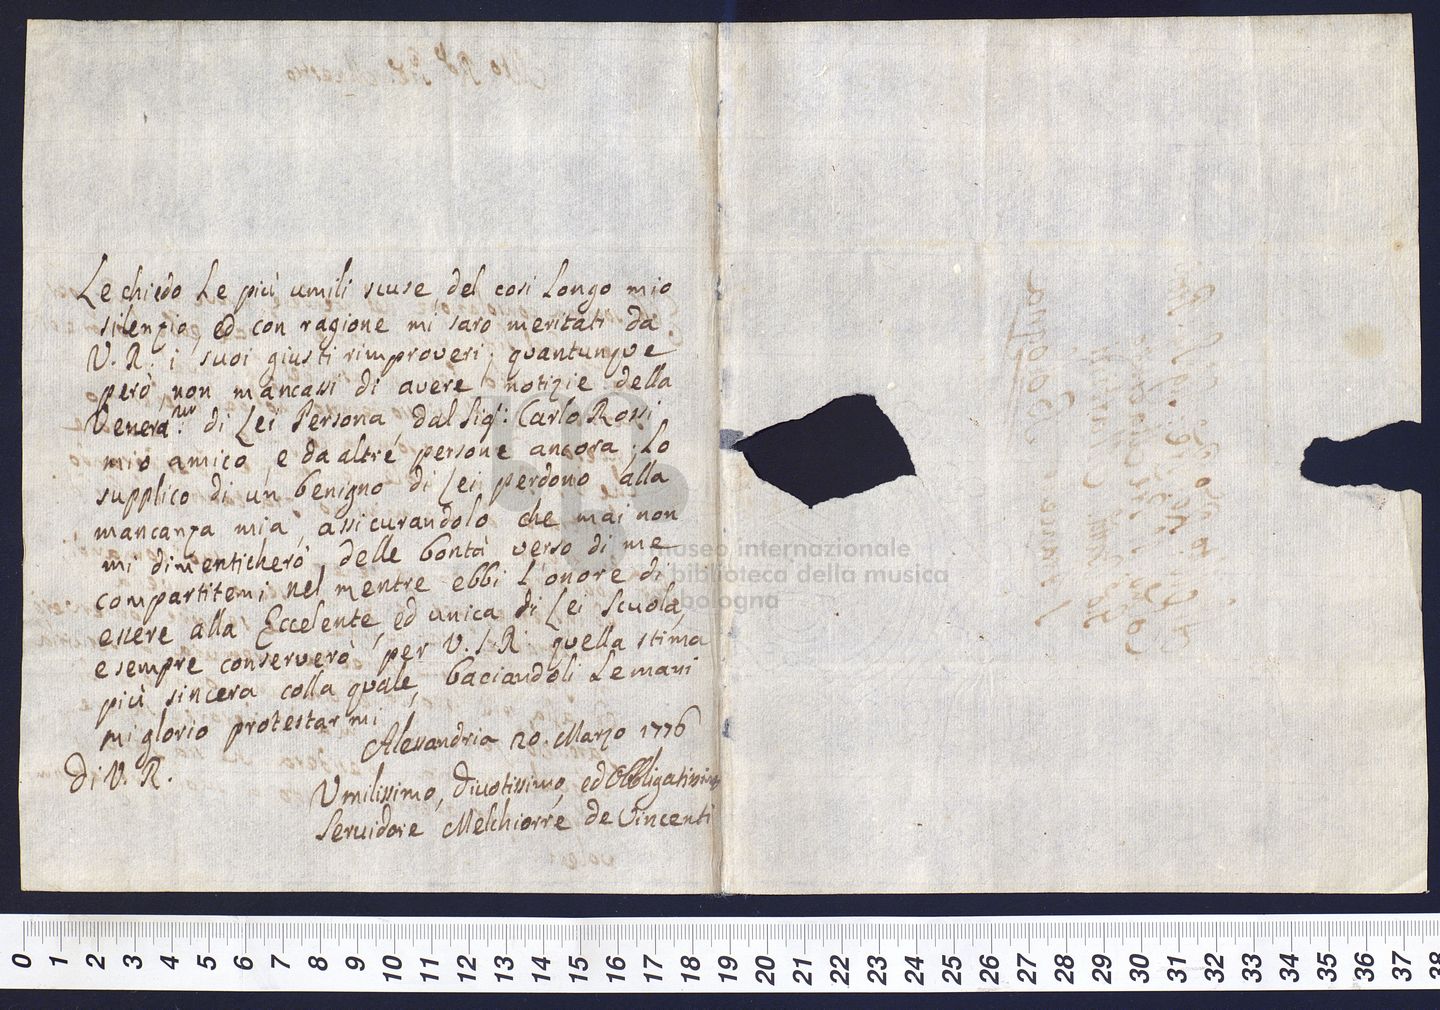 Le chiedo Le più umili scuse del cosi Longo mio
silenzio, ed con ragione mi saro meritati da
V. R. i suoi giusti rimproveri; quantunque
però non mancassi di avere notizie della
Venera.^ma di Lei Persona dal Sig.^r: Carlo Rossi
mio amico, e da altre persone ancora; Lo
supplico di un benigno di Lei perdono alla
mancanza mia, assicurandolo che mai non
mi dimenticherò delle bontà verso di me
compartitemi nel mentre ebbi L'onore di
essere alla Eccelente, ed unica di Lei Scuola,
e sempre conserverò per V. S. R. quella stima
più sincera colla quale, baciandoli Le mani
mi glorio protestarmi
Alessandria 20. Marzo 1776
Di V. R.
Umilissimo, Divotissimo, ed Obbligatissimo
Servidore Melchiorre de Vincenti
museo internazionale
e biblioteca della musica
di bologna
0 1 2 3 4 5 6 7 8 9 10 11 12 13 14 15 16 17 18 19 20 21 22 23 24 25 26 27 28 29 30 31 32 33 34 35 36 37 38